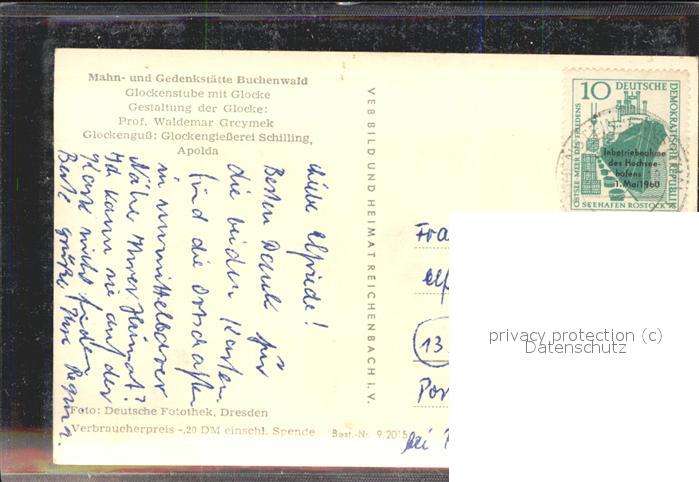 Mahn- und Gedenkstätte Buchenwald
Glockenstube mit Glocke
Gestaltung der Glocke:
Prof. Waldemar Grcymek
Glockenguß: Glockengießerei Schilling,
Apolda
Liebe Elfriede!
Besten Dank für
die beiden Karten.
Sind die Ortschaften
in unmittelbarer
Nähe Ihrer Heimat?
Ich kann sie auf der
Karte nicht finden.
Beste Grüße Ihre Regina.
Foto: Deutsche Fotothek, Dresden
Verbraucherpreis -,20 DM einschl. Spende
Best.-Nr. 9/2015
VEB BILD UND HEIMAT REICHENBACH I. V.
10 DEUTSCHE
DEMOKRATISCHE REPUBLIK
OSTSEE MEER DES FRIEDENS
Inbetriebnahme
des Hochsee-
hafens
1. Mai 1960
SEEHAFEN ROSTOCK
Fra
Elf
13
Por
bei
privacy protection (c)
Datenschutz